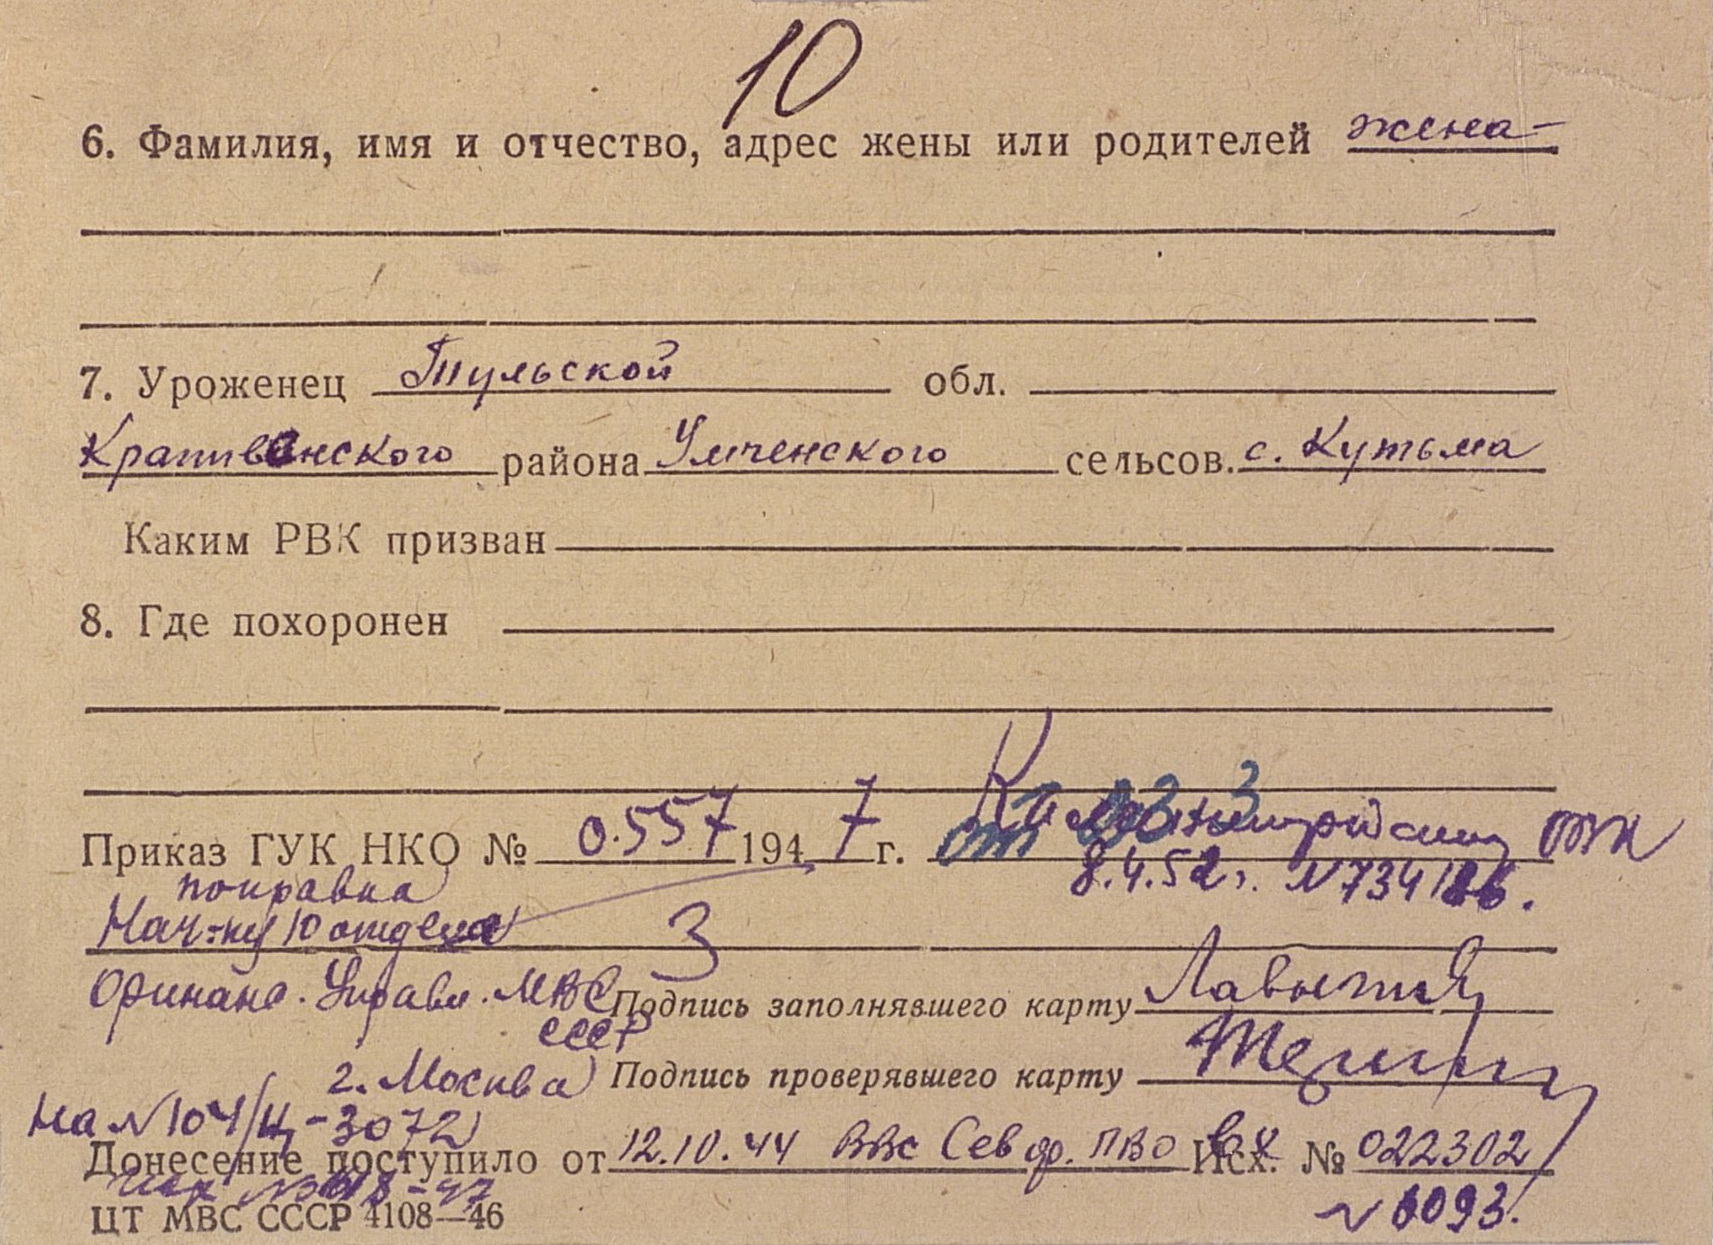 10
6. Фамилия, имя и отчество, адрес жены или родителей жена-
7. Уроженец Тульской обл.
Крапивенского района Умченского сельсов. с. Кутьма
Каким РВК призван
8. Где похоронен
Приказ ГУК НКО № 0.557 1947 г. от
8.4.52г. N 734
поправка
Нач-ку 10 отдела 3
Финанс. Управл. МВС Подпись заполнявшего карту
СССР
г. Москва Подпись проверявшего карту
На N 104/Ц-3072
Донесение поступило от 12.10.44 ВВС Сев фр. ПВО вх Исх. № 022302
ЦТ МВС СССР 4108—46
N 6093.